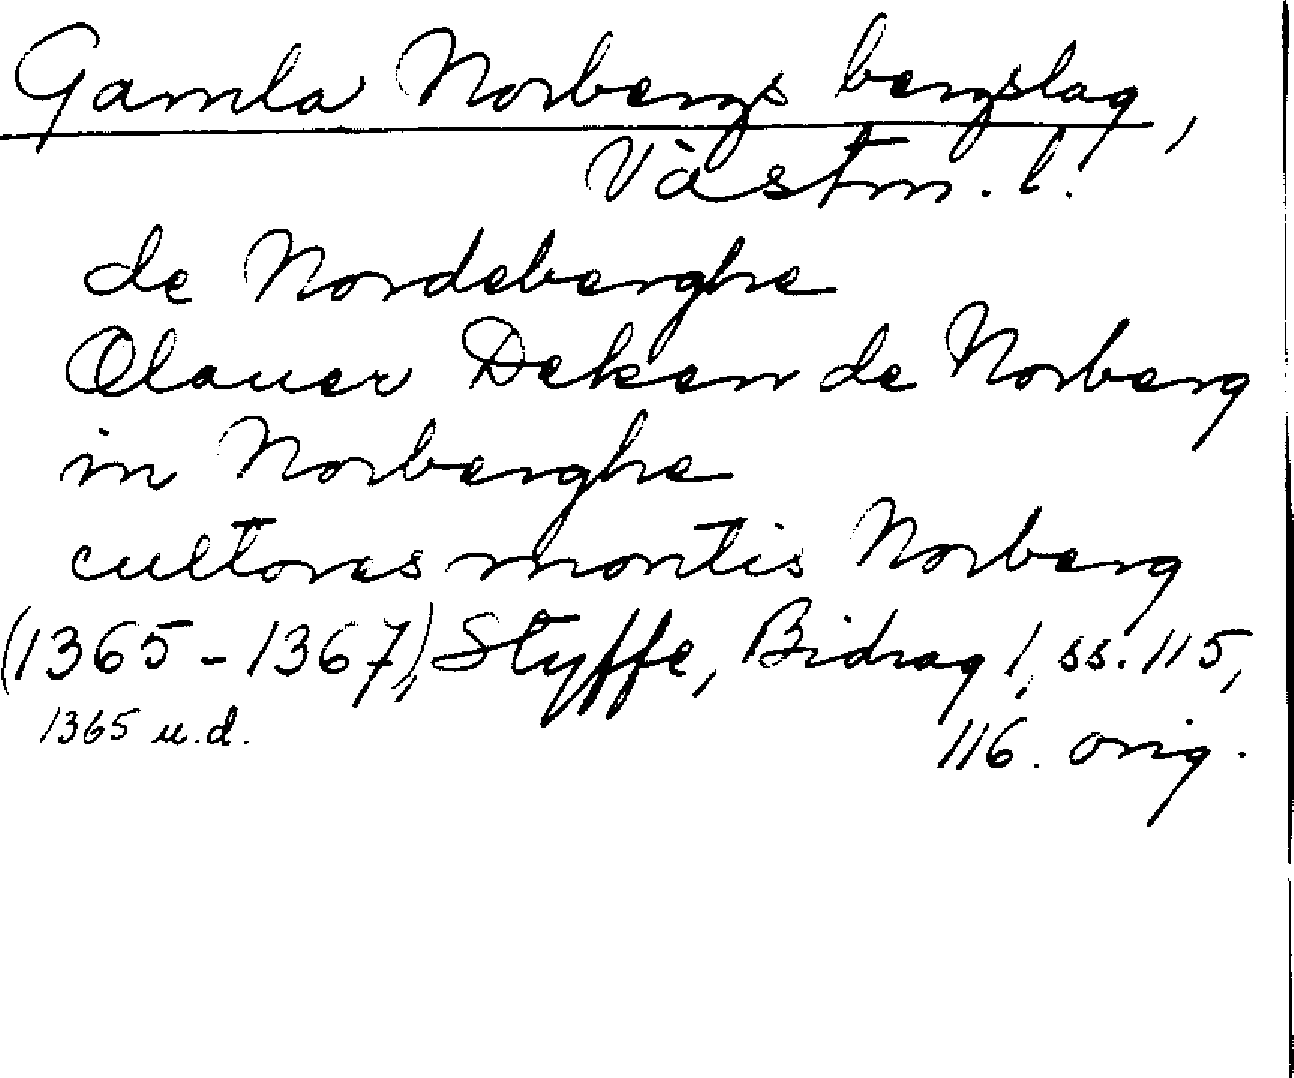 Gamla Norbergs bergslag,
Västm. l.
de Nordeberghe
Olauer Deken de Norberg
in Norberghe
cultores montis Norberg
(1365-1367), Styffe, Bidrag 1, ss. 115,
1365 u.d. 116. orig.